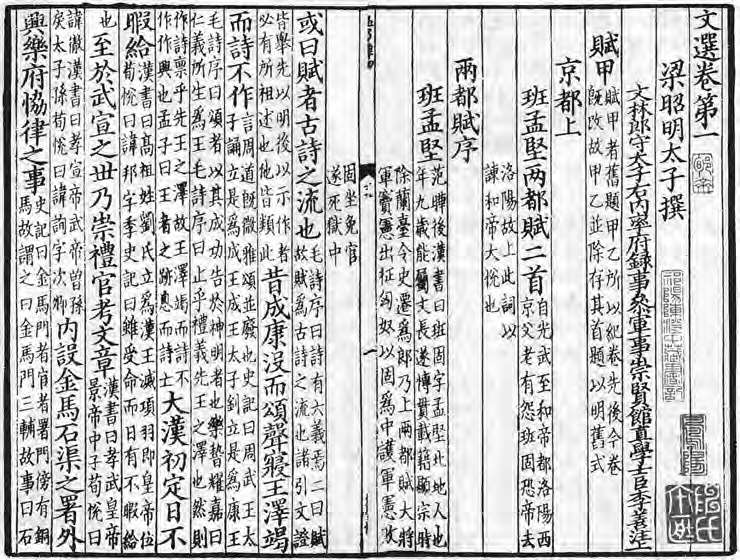 文選卷第一
梁昭明太子撰
文林郎守太子右內率府録事參軍事崇賢館直學士臣李善注
賦甲
賦甲者舊題甲乙所以紀卷先後今卷
既改故甲乙並除存其首題以明舊式
京都上
班孟堅兩都賦二首
自光武至和帝都洛陽西
京父老有怨班固恐帝去
洛陽故上此詞以
諫和帝大悅也
兩都賦序
班孟堅
范曄後漢書曰班固字孟堅北地人也
年九歲能屬文長遂博貫載籍顯宗時
除蘭臺令史遷爲郎乃上兩都賦大將
軍竇憲出征匈奴以固爲中護軍憲敗
固坐免官
遂死獄中
一
或曰賦者古詩之流也
毛詩序曰詩有六義焉二曰賦
故賦爲古詩之流也諸引文證
皆舉先以明後以示作者
必有所祖述也他皆類此
昔成康没而頌聲寢王澤竭
而詩不作
言周道既微雅頌並廢也史記曰周武王太
子誦立是爲成王成王太子釗立是爲康王
毛詩序曰頌者以其成功告於神明者也樂稽耀嘉曰
仁義所生爲王毛詩序曰止乎禮義先王之澤也然則
作詩稟乎先王之澤故王澤竭而詩不
作作興也孟子曰王者之跡息而詩亡
大漢初定日不
暇給
漢書曰高祖姓劉氏立爲漢王滅項羽即皇帝位
荀悅曰諱邦字季史記曰雖受命而日有不暇給
也
至於武宣之世乃崇禮官考文章
漢書曰孝武皇帝
景帝中子荀悅曰
諱徹漢書曰孝宣帝武帝曾孫
戾太子孫荀悅曰諱詢字次卿
內設金馬石渠之署外
興樂府協律之事
史記曰金馬門者宦者署門傍有銅
馬故謂之曰金馬門三輔故事曰石